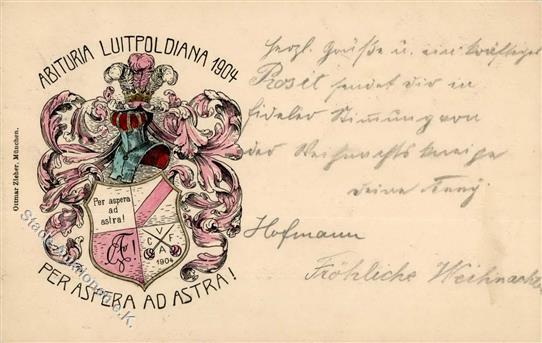 ABITURIA LUITPOLDIANA 1904
Per aspera
ad
astra!
V
C F
A
1904
PER ASPERA AD ASTRA!
Ottmar Zieher, München.
herzl. Grüße u. ein kräftiges
Prosit sendet dir in
fideler Stimmung von
der Weihnachtskneipe
deine
Hofmann
Fröhliche Weihnachten